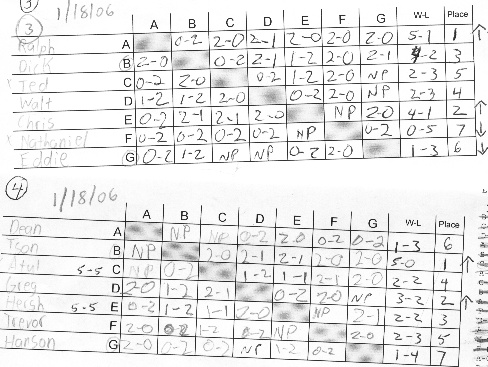 3
3 1/18/06
A B C D E F G W-L Place
Ralph A 0-2 2-0 2-1 2-0 2-0 2-0 5-1 1 ↑
Dick B 2-0 0-2 2-1 1-2 2-0 2-1 4-2 3
Ted C 0-2 2-0 0-2 1-2 2-0 NP 2-3 5
Walt D 1-2 1-2 2-0 0-2 2-0 NP 2-3 4
Chris E 0-2 2-1 2-1 2-0 NP 2-0 4-1 2 ↑
Nathaniel F 0-2 0-2 0-2 0-2 NP 0-2 0-5 7 ↓
Eddie G 0-2 1-2 NP NP 0-2 2-0 1-3 6 ↓
4 1/18/06
A B C D E F G W-L Place
Dean A NP NP 0-2 2-0 0-2 0-2 1-3 6
Tson B NP 2-0 2-1 2-1 2-0 2-0 5-0 1 ↑
Atul 5-5 C NP 0-2 1-2 1-1 2-1 2-0 2-2 4
Greg D 2-0 1-2 2-1 0-2 2-0 NP 3-2 2 ↑
5-5 E 0-2 1-2 1-1 2-0 NP 2-1 2-2 3
Trevor F 2-0 0-2 1-2 0-2 NP 2-0 2-3 5
Hanson G 2-0 0-2 0-2 NP 1-2 0-2 1-4 7